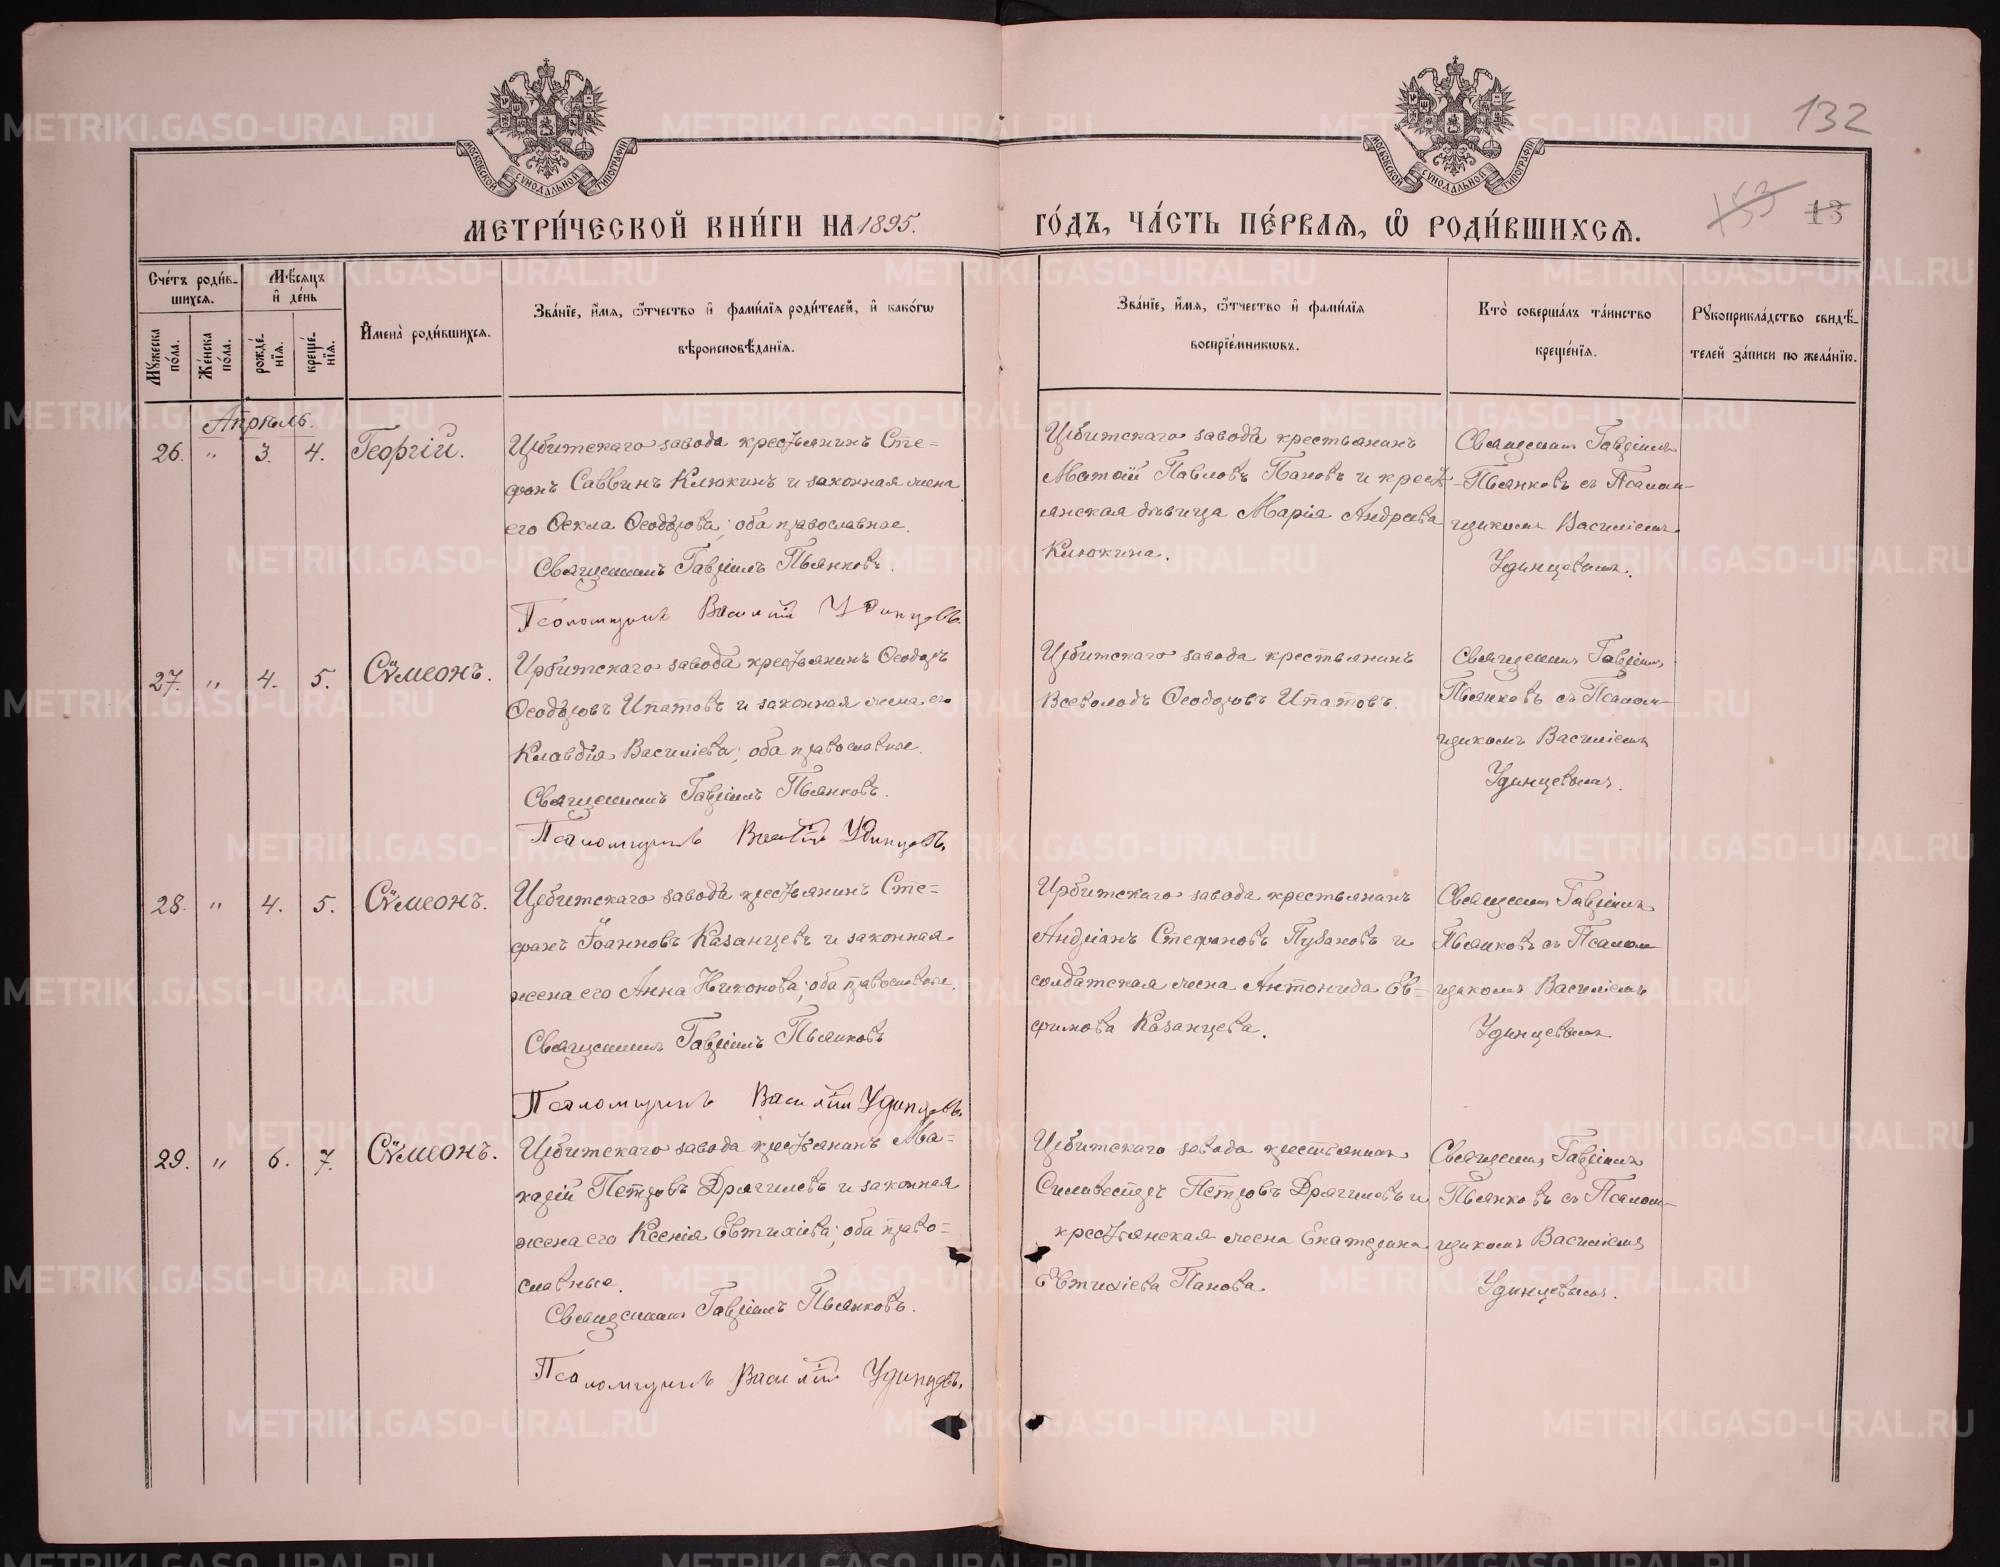 132
МОСКОВСКОЙ СУНОДАЛЬНОЙ ТИПОГРАФІИ
МОСКОВСКОЙ СУНОДАЛЬНОЙ ТИПОГРАФІИ
МЕТРИ́ЧЕСКОЙ КНИ́ГИ НА 1895.
ГО́ДЪ, ЧА́СТЬ ПЕ́РВАЯ, Ѡ РОДИ́ВШИХСЯ.
153 13
Сче́тъ роди́в-
шихся.
Мѣсяцъ
и де́нь
Мужеска по́ла.
Же́нска по́ла.
рожде́-нїя.
креще́-нїя.
Имена̀ роди́вшихся.
Зва́нїе, и́мя, ѻ́тчество и фами́лїя роди́телей, и како́гѡ
вѣроисповѣ́данїя.
Зва́нїе, и́мя, ѻ́тчество и фами́лїя
воспрїе́мникѡвъ.
Кто̀ соверша́лъ та́инство
креще́нїя.
Рукоприкла́дство свидѣ́-
телей за́писи по жела́нїю.
Апрѣль.
26. " 3. 4. Георгій.
Ирбитскаго завода крестьянинъ Сте-
фанъ Саввинъ Клюкинъ и законная жена
его Ѳекла Ѳеодорова; оба православные.
Священникъ Гавріилъ Пьянковъ.
Псаломщикъ Василій Удинцовъ.
Ирбитскаго завода крестьянинъ
Матѳій Павловъ Пановъ и кресть-
янская дѣвица Марія Андреева
Клюкина.
Священникъ Гавріилъ
Пьянковъ съ Псалом-
щикомъ Василіемъ
Удинцевымъ.
27. " 4. 5. Сѵмеонъ.
Ирбитскаго завода крестьянинъ Ѳеодоръ
Ѳеодоровъ Ипатовъ и законная жена его
Клавдія Василіева; оба православные.
Священникъ Гавріилъ Пьянковъ.
Псаломщикъ Василій Удинцовъ.
Ирбитскаго завода крестьянинъ
Всеволодъ Ѳеодоровъ Ипатовъ.
Священникъ Гавріилъ
Пьянковъ съ Псалом-
щикомъ Василіемъ
Удинцевымъ.
28. " 4. 5. Сѵмеонъ.
Ирбитскаго завода крестьянинъ Сте-
фанъ Іоанновъ Казанцевъ и законная
жена его Анна Никонова; оба православные.
Священникъ Гавріилъ Пьянковъ
Псаломщикъ Василій Удинцовъ.
Ирбитскаго завода крестьянинъ
Андріанъ Стефановъ Пузановъ и
солдатская жена Антонида Ев-
фимова Казанцева.
Священникъ Гавріилъ
Пьянковъ съ Псалом-
щикомъ Василіемъ
Удинцевымъ
29. " 6. 7. Сѵмеонъ.
Ирбитскаго завода крестьянинъ Ма-
карій Петровъ Дрягилевъ и законная
жена его Ксенія Евтихіева; оба право-
славные.
Священникъ Гавріилъ Пьянковъ.
Псаломщикъ Василій Удинцовъ.
Ирбитскаго завода крестьянинъ
Силивестръ Петровъ Дрягилевъ и
крестьянская жена Екатерина
Евтихіева Панова.
Священникъ Гавріилъ
Пьянковъ съ Псалом-
щикомъ Василіемъ
Удинцевымъ.
METRIKI.GASO-URAL.RU